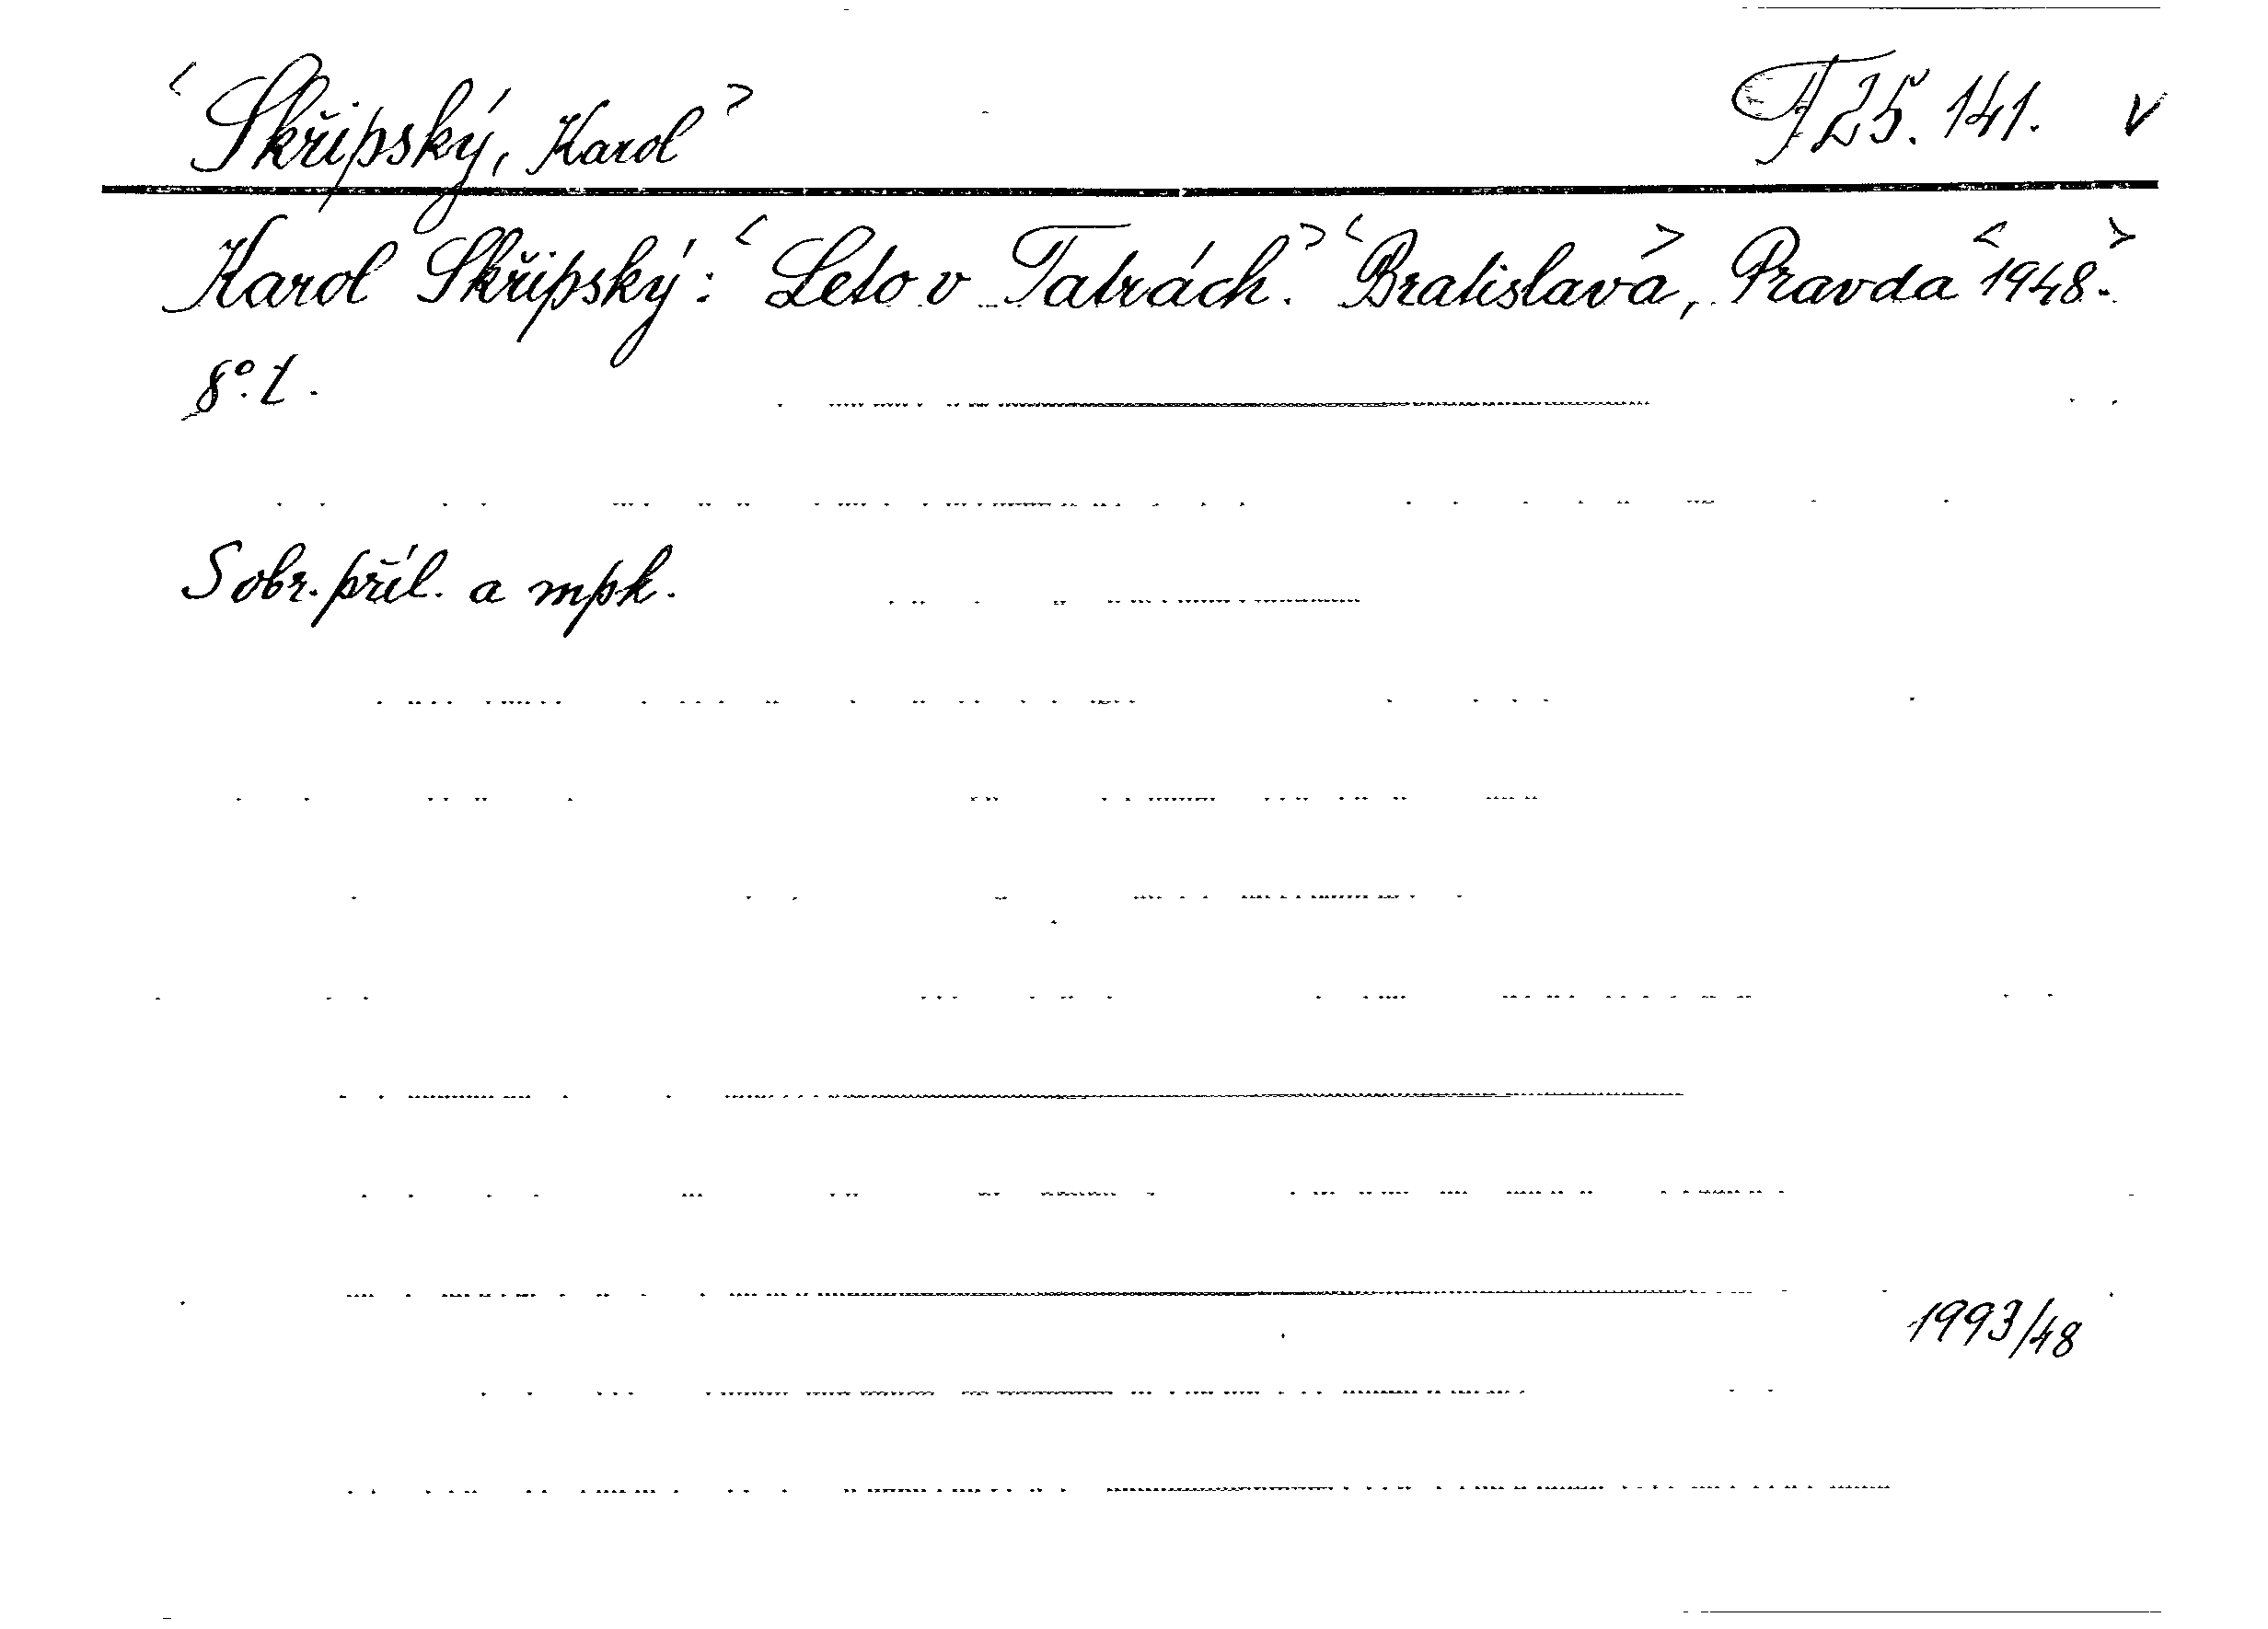 <Skřipský, Karol> T 25.141. v
Karol Skřipský: <Leto v Tatrách.> <Bratislava>, Pravda <1948.>
8°. l.
S obr. příl. a mpk.
1993/48